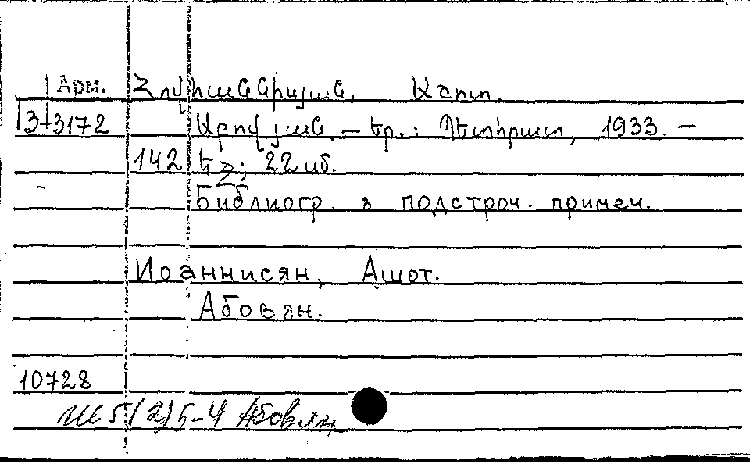 Арм. Հովհաննիսյան, Աշոտ.
3-3172 Աբովյան. — Եր.: Պետհրատ, 1933. —
142 եջ; 22 սմ.
Библиогр. в подстроч. примеч.
Иоаннисян, Ашот.
Абовян.
10728
Ш5(2)5-4 Абовян